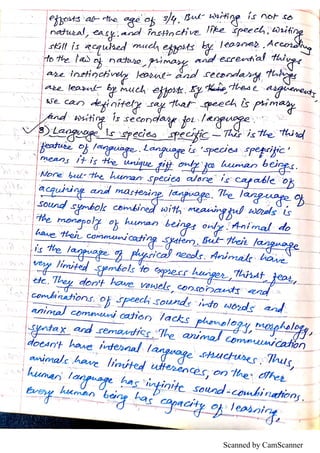 efforts at the age of 3/4. But writing is not so
natural, easy and instinctive like speech, writing
skill is acquired much efforts by learner. According
to the law of nature, primary and essential things
are instinctively learnt and secondary things
are learnt by much efforts. By these arguements,
we can definitely say that speech is primary
and writing is secondary for language.
3) Language is species specific - This is the third
feature of language. Language is 'species specific'
means it is the unique gift only for human beings.
None but the human species alone is capable of
acquiring and mastering language. The language of
sound symbols combined with meaningful words is
the monopoly of human beings only. Animal do
have their communicating system. But their language
is the language of physical needs. Animals have
very limited symbols to express hunger, thirst, fear,
etc. They don't have vowels, consonants and
combinations of speech sounds into words and
animal communication lacks phonology, morphology,
syntax and semantics. The animal communication
doesn't have internal language structures. Thus,
animals have limited utterences, on the other
human language has infinite sound-combinations.
Every human being has capacity of learning,
Scanned by CamScanner